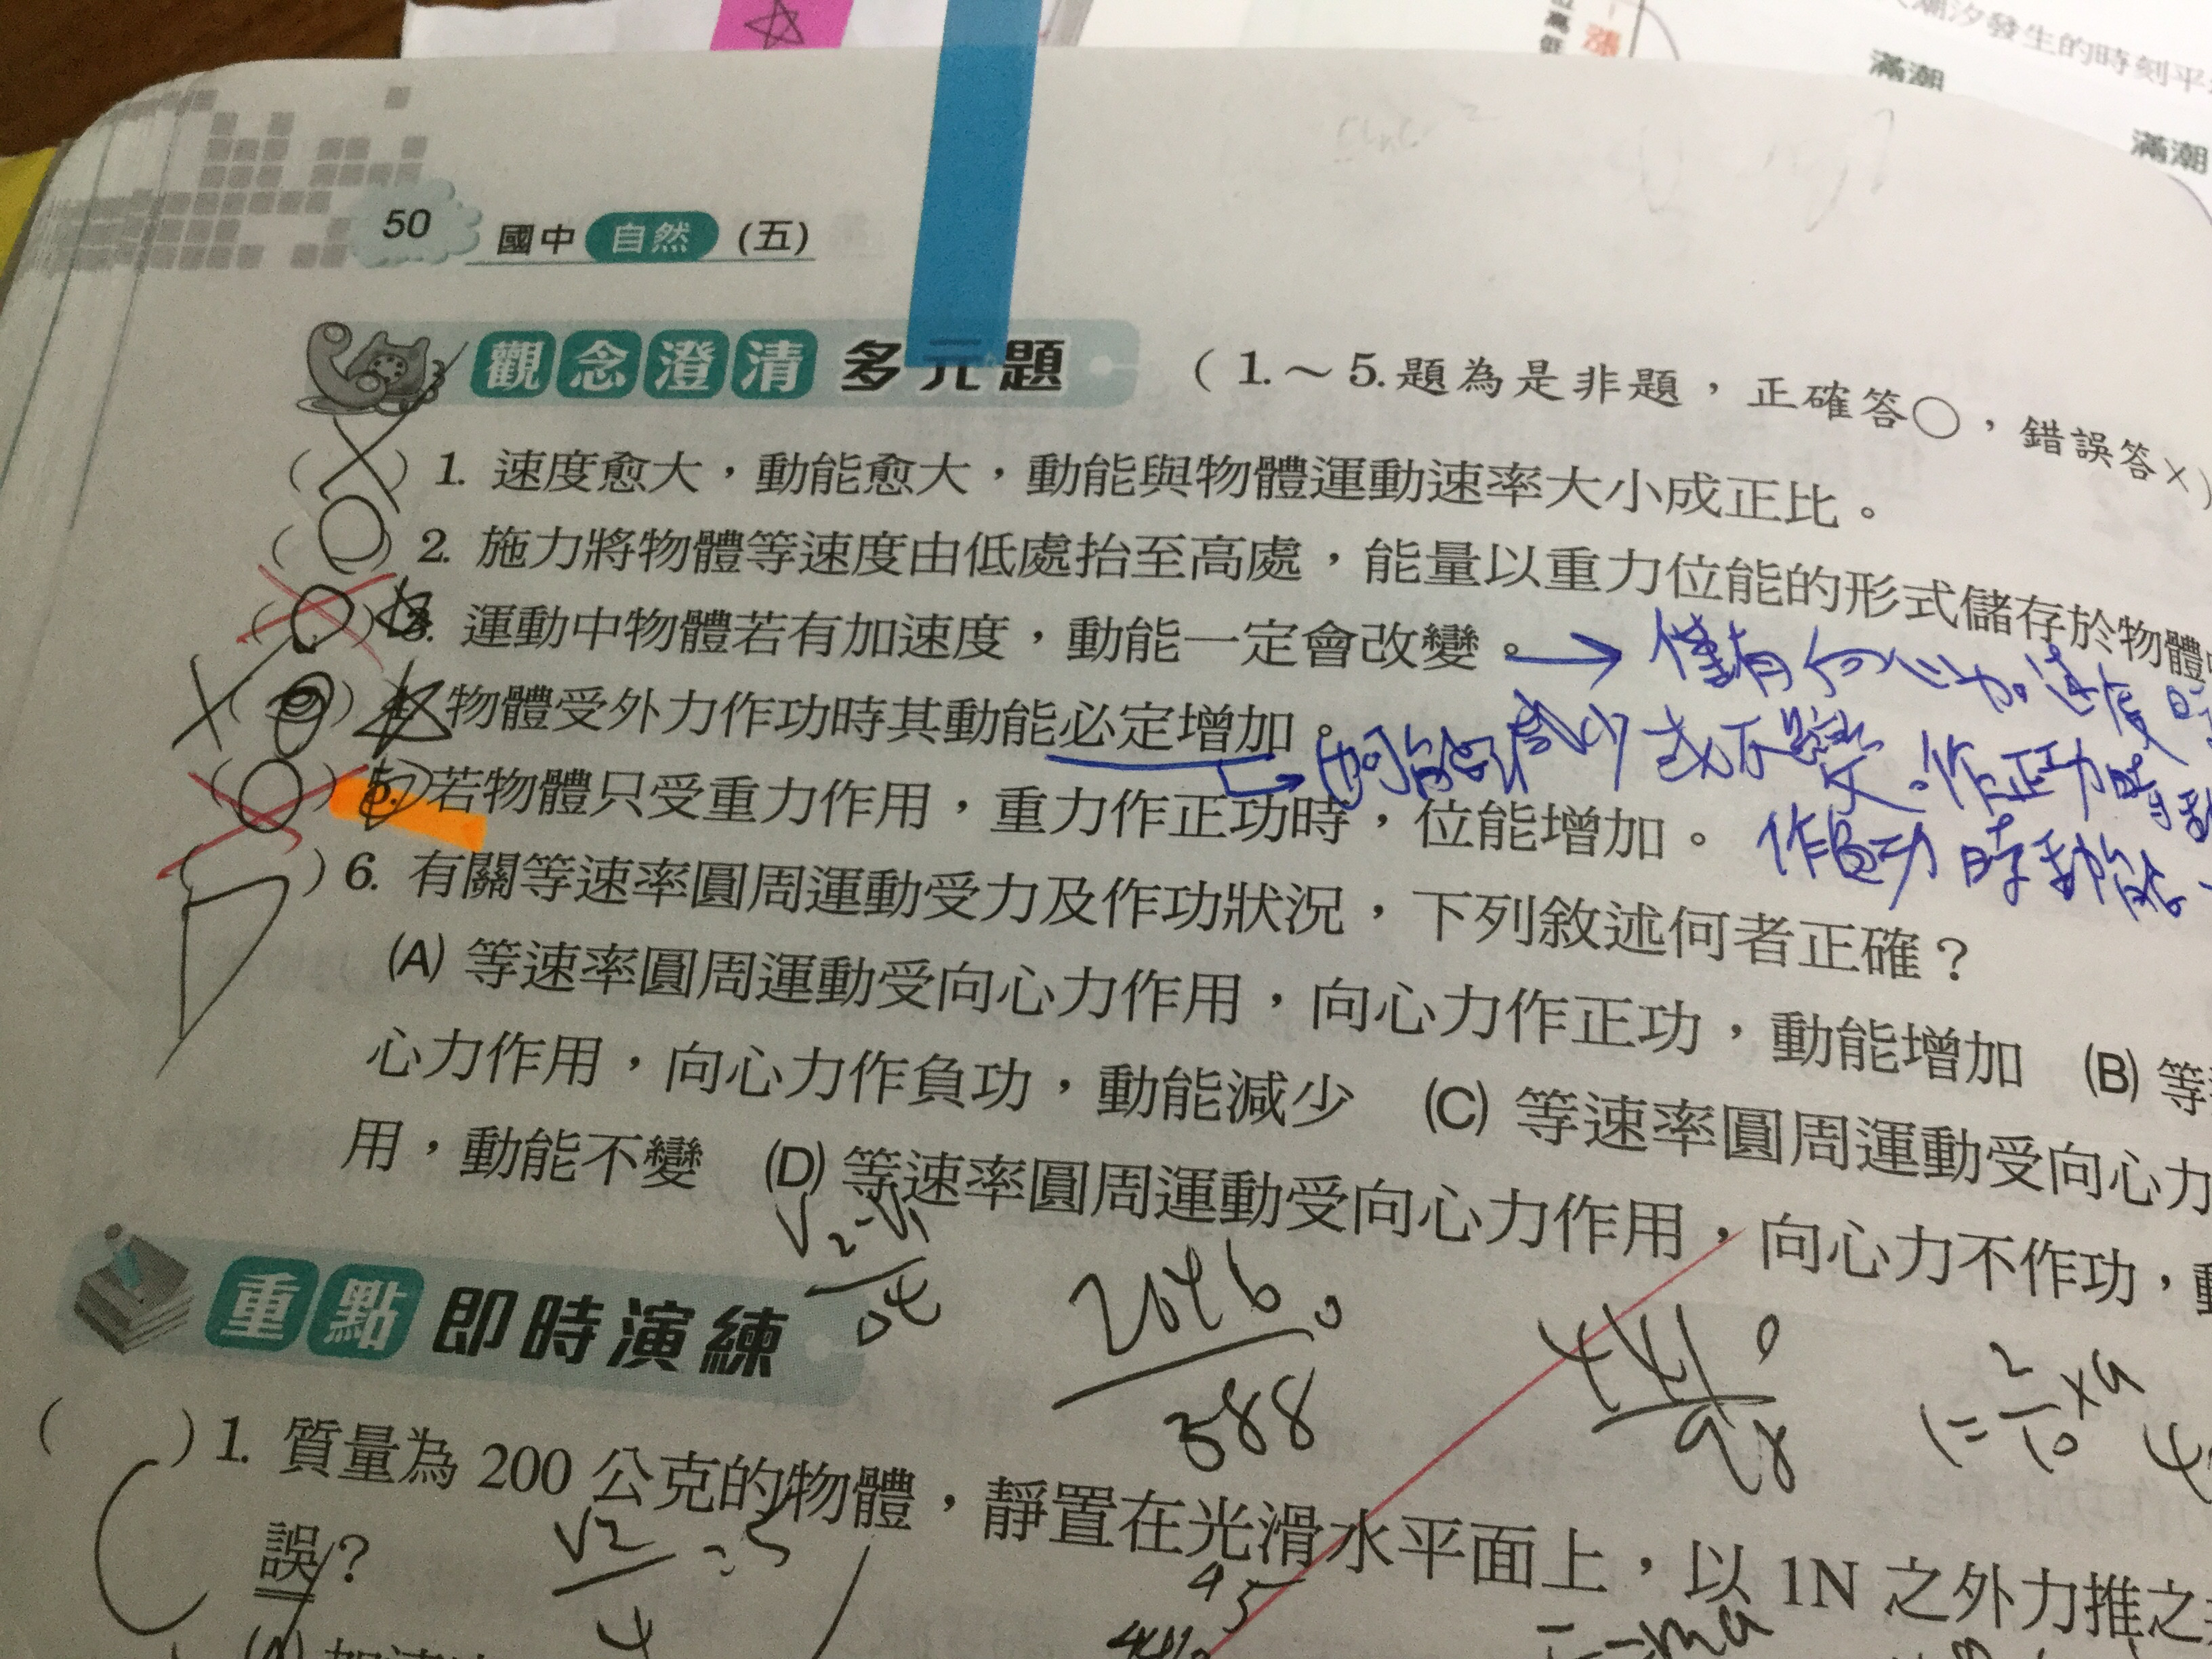 潮汐發生的時刻平
滿潮
滿潮
漲
50 國中 自然 (五)
觀念澄清 多元題 (1.～5.題為是非題，正確答○，錯誤答×)
(×) 1. 速度愈大，動能愈大，動能與物體運動速率大小成正比。
(○) 2. 施力將物體等速度由低處抬至高處，能量以重力位能的形式儲存於物體
(○) 3. 運動中物體若有加速度，動能一定會改變。→ 僅有向心力。速度
× ( ) 物體受外力作功時其動能必定增加。
→ 可能減少或不改變。作正功時動
(○) 5. 若物體只受重力作用，重力作正功時，位能增加。 作負功時動能
(D) 6. 有關等速率圓周運動受力及作功狀況，下列敘述何者正確？
(A) 等速率圓周運動受向心力作用，向心力作正功，動能增加 (B) 等
心力作用，向心力作負功，動能減少 (C) 等速率圓周運動受向心力
用，動能不變 (D) 等速率圓周運動受向心力作用，向心力不作功，動
588
98
1=2/10×a
重點 即時演練
(C) 1. 質量為 200 公克的物體，靜置在光滑水平面上，以 1N 之外力推之
誤？
45
=ma
(A) 加速